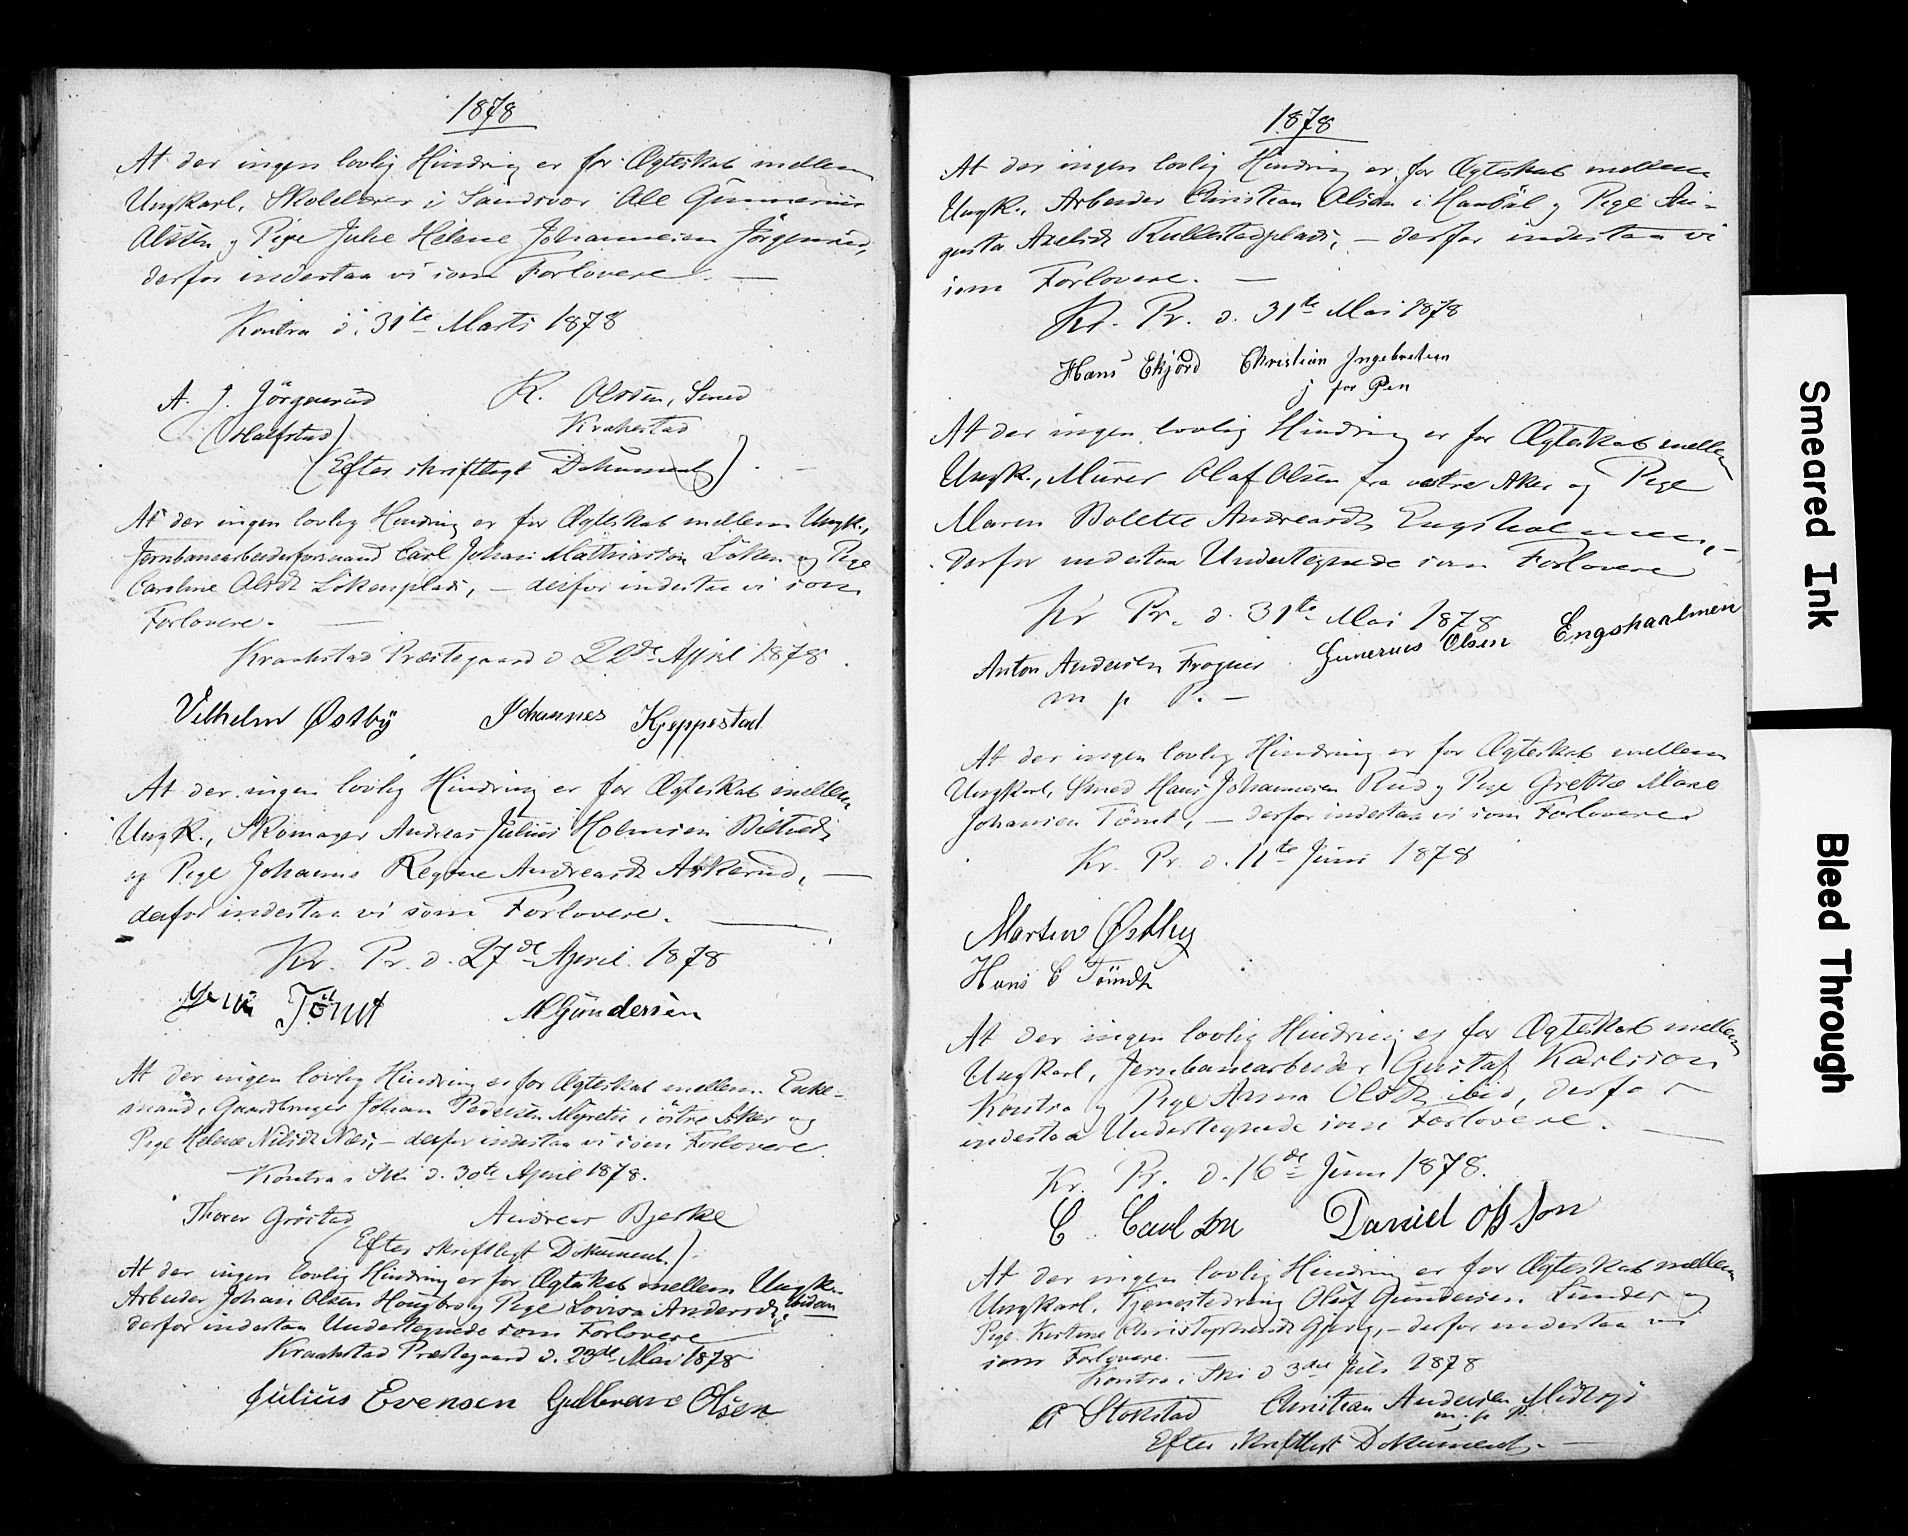 1878
At der ingen lovlig Hindring er for Ægteskab mellem
Ungkarl, Skolelærer i Sandsvær Ole Gunnerius
Olsen og Pige Julie Helene Johannesen Jörgensrud,
derfor indestaa vi som Forlovere. —
Kontra d. 31te Marts 1878
A. J. Jörgensrud K. Olssen, Smed
(Halfstad) Krakestad
(Efter skriftligt Dokument). —
At der ingen lovlig Hindring er for Ægteskab mellem Ungk.,
Jernbanearbeiderformand Carl Johan Mathiason Löken og Pige
Caroline Olsdt Lökenplads, — derfor indestaa vi som
Forlovere. —
Kraakstad Præstegaard d 22de April 1878.
Vilhelm Østby Johannes Kjeppestad
At der ingen lovlig Hindring er for Ægteskab mellem
Ungk., Skomager Andreas Julius Holmsen
og Pige Johanne Regine Andreasdt Askerud, —
derfor indestaa vi som Forlovere. —
Kr. Pr. d. 27de April 1878
Tömt M Gundersen
At der ingen lovlig Hindring er for Ægteskab mellem Enke-
mand, Gaardbruger Johan Pedersen i östre Aker og
Pige Helene Nilsdt Næs, — derfor indestaa vi som Forlovere.
Kontra i Ski d. 30te April 1878.
Thorer Gröstad Andreas Bjerke
(Efter skriftligt Dokument.)
At der ingen lovlig Hindring er for Ægteskab mellem Ungk.
Arbeider Johan Olsen Hougbro og Pige Lovisa Andersdt, ibidem
derfor indestaa Undertegnede som Forlovere
Kraakstad Præstegaard d. 23de Mai 1878
Julius Evensen Gulbran Olsen
1878
At der ingen lovlig Hindring er for Ægteskab mellem
Ungk., Arbeider Christian Olsen i Haabøl og Pige Au-
gusta Axelsdt Kullestadplads, — derfor indestaa vi
som Forlovere. —
Kr. Pr. d. 31te Mai 1878
Hans Ekjörd Christian Ingebretsen
j for Pen
At der ingen lovlig Hindring er for Ægteskab mellem
Ungk., Murer Olaf Olsen fra vestre Aker og Pige
Maren Bolette Andreasdt Engskalmen, —
derfor indestaa Undertegnede som Forlovere
Kr Pr. d. 31te Mai 1878
Anton Andersen Frogner Gunerues Olsen Engshaalmen
m p P. —
At der ingen lovlig Hindring er for Ægteskab mellem
Ungkarl, Smed Hans Johannesen Rud og Pige Grethe Marie
Johansen Tömt, — derfor indestaa vi som Forlovere
Kr. Pr. d. 11te Juni 1878
Martin Østby
Hans C Tömdt
At der ingen lovlig Hindring er for Ægteskab mellem
Ungkarl, Jernbanearbeider Gustaf Karlsson
Kontra og Pige Anna Olsdt ibid, derfor
indestaa Undertegnede som Forlovere. —
Kr. Pr. d. 16de Juni 1878.
C. Carlson Daniel Olsson
At der ingen lovlig Hindring er for Ægteskab mellem
Ungkarl, Tjenestedreng Oluf Gundersen Lunder og
Pige Kirstine Christophersdt Gjevig, — derfor indestaa vi
som Forlovere. —
Kontra i Ski d 3die Juli 1878
A Stokstad Christian Andersen Midtsjö
m. p. P.
Efter skriftligt Dokument. —
Smeared Ink
Bleed Through